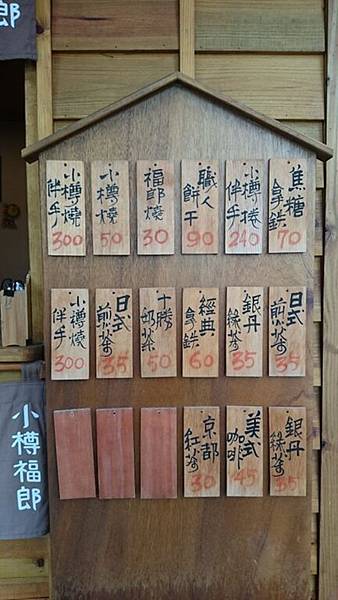 焦糖
拿鐵
70
小樽捲
伴手
240
職人
餅干
90
福郎燒
30
小樽燒
50
小樽燒
伴手
300
日式
煎茶
35
銀丹
綠茶
35
經典
拿鐵
60
十勝
奶茶
50
日式
煎茶
35
小樽燒
伴手
300
銀丹
綠茶
35
美式
咖啡
45
京都
紅茶
30
郎
小樽福郎